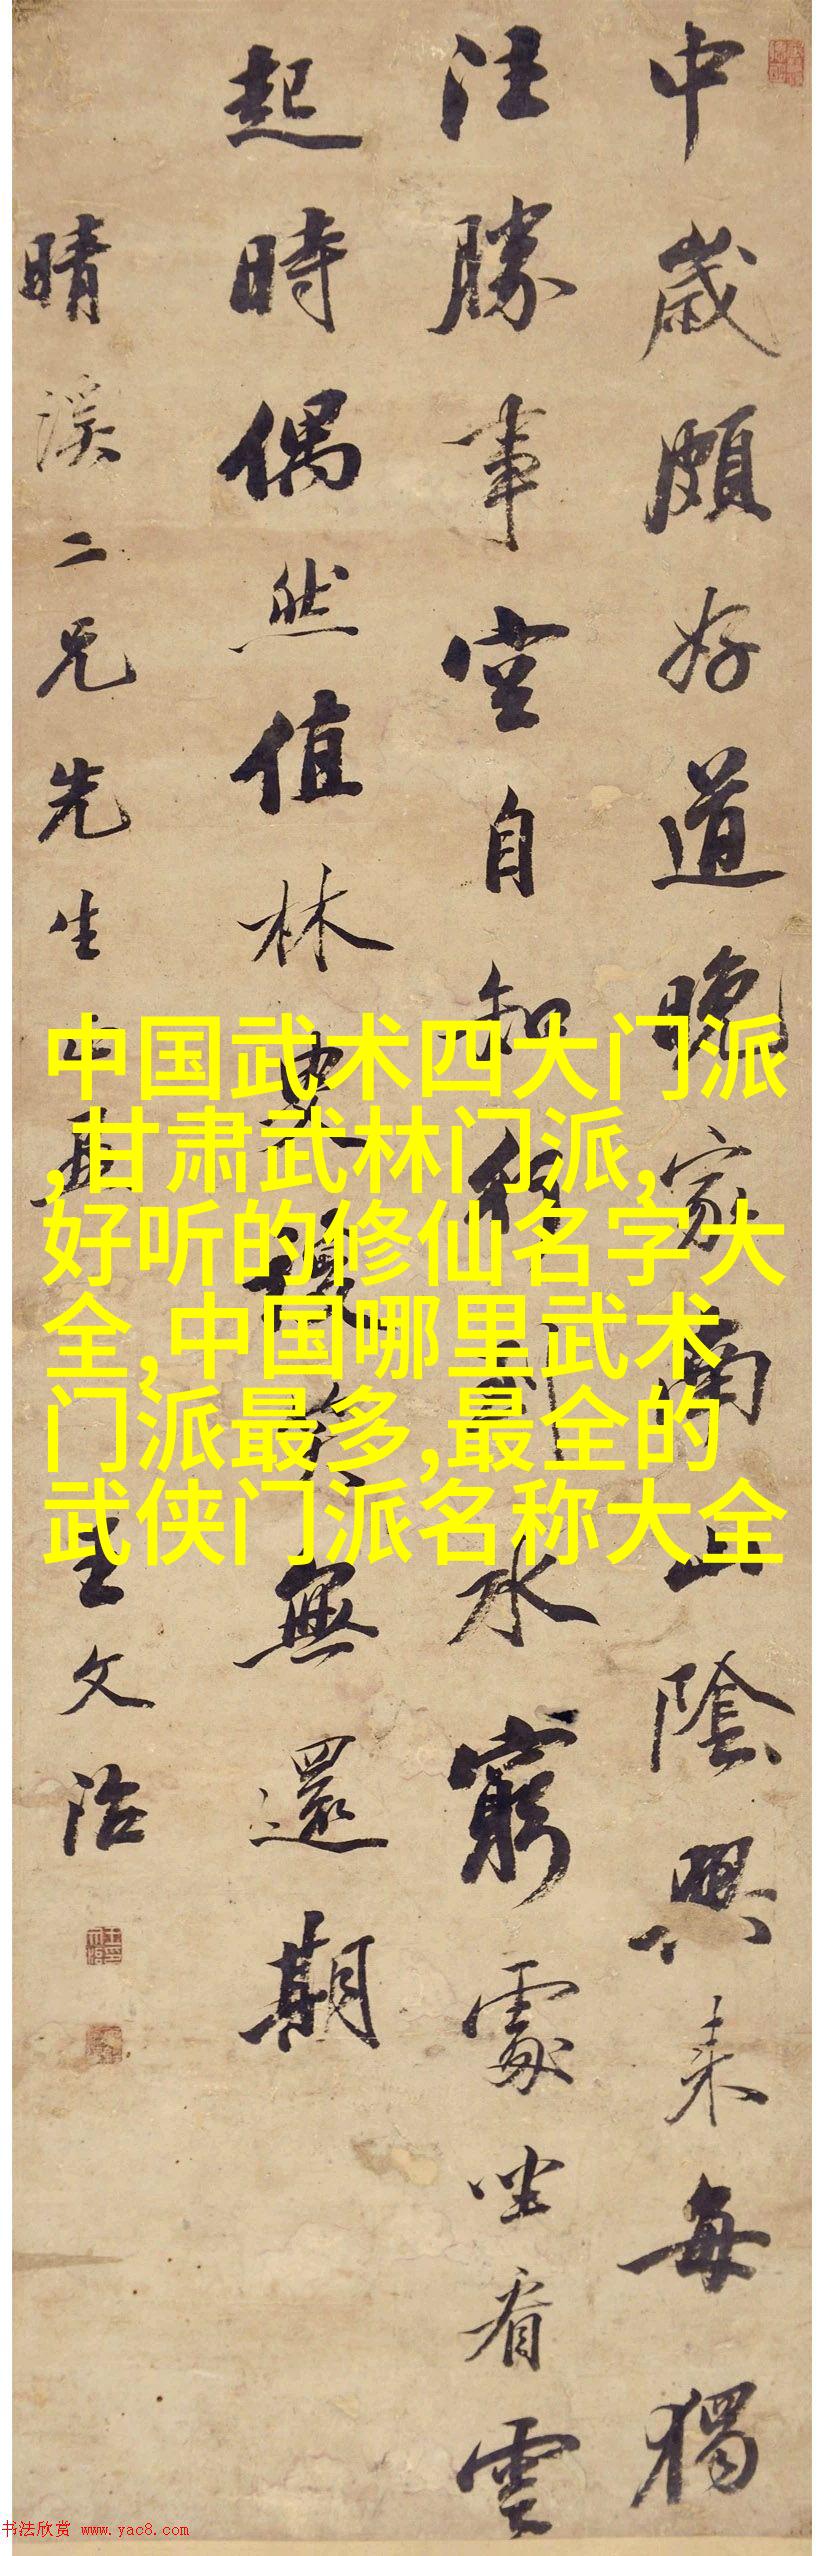 中歲頗好道晚家南山陰興來每獨
往勝事空自知行到水窮處坐看雲
起時偶然值林叟談笑無還期
晴溪二兄先生正王文治
中国武术四大门派
,甘肃武林门派,
好听的修仙名字大
全,中国哪里武术
门派最多,最全的
武侠门派名称大全
书法欣赏 www.yac8.com